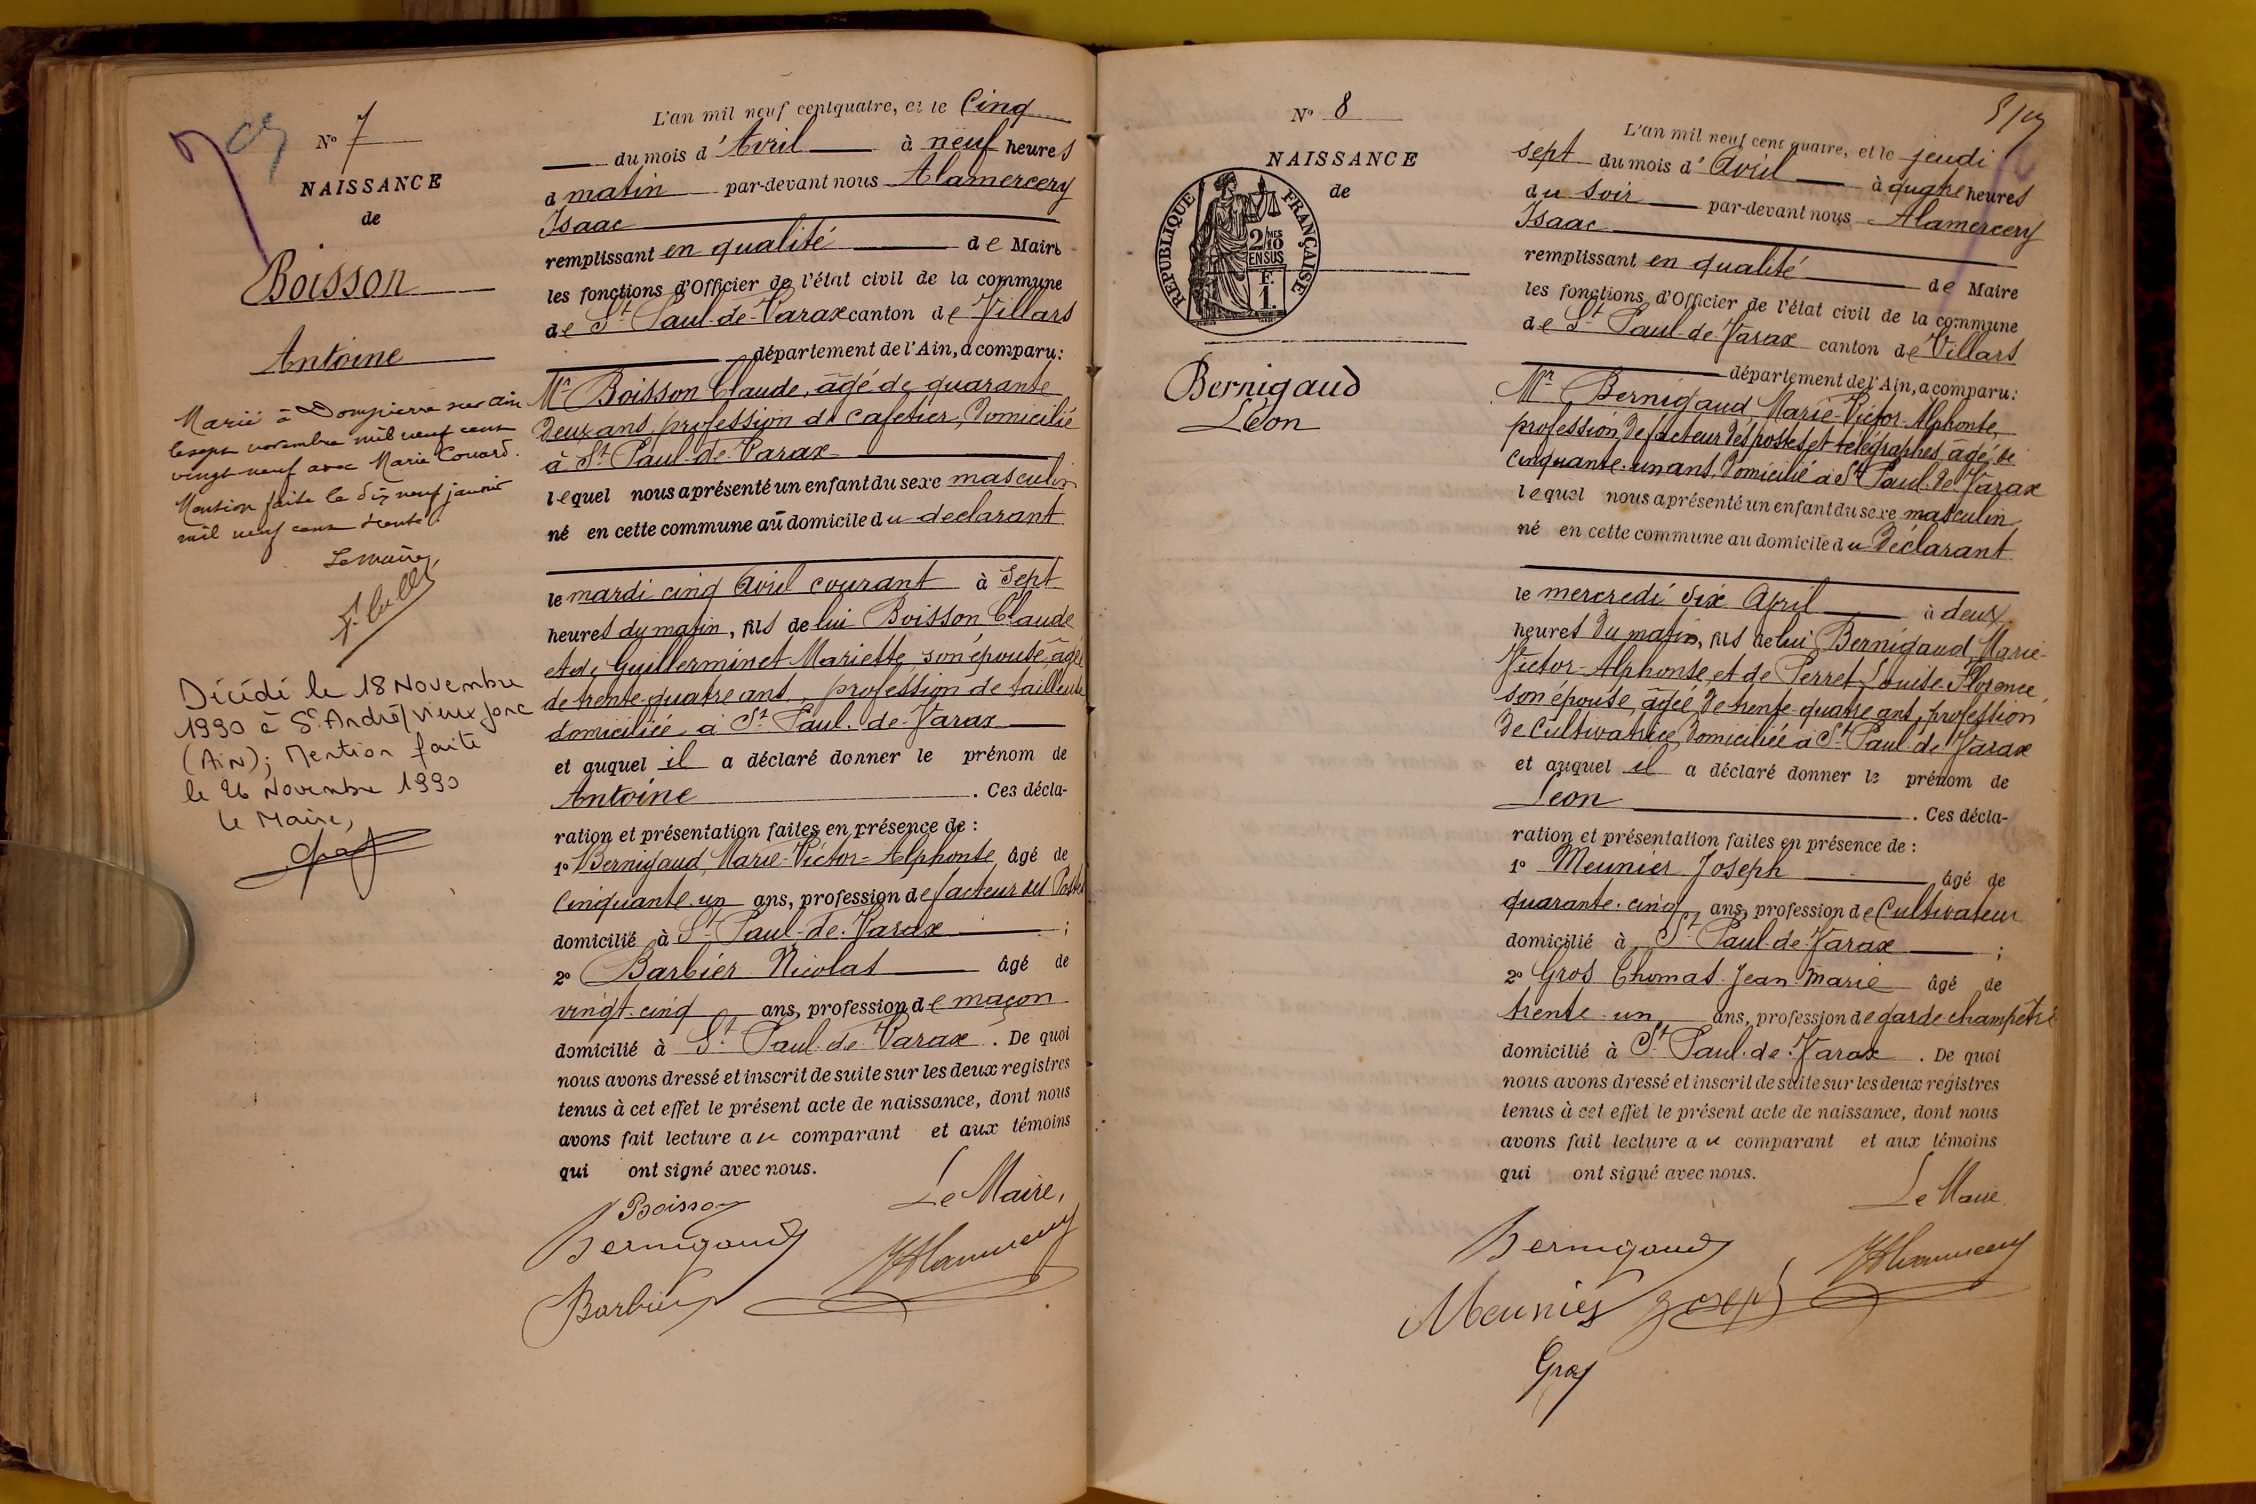 N° 7
NAISSANCE
de
Boisson
Antoine
Marié à Dompierre sur ain
le sept novembre mil neuf cent
vingt neuf avec Marie Couard.
Mention faite le dix neuf janvier
mil neuf cent trente.
Le maire,
Décédé le 18 Novembre
1990 à St André/vieux jonc
(Ain); Mention faite
le 26 Novembre 1990
Le Maire,
L'an mil neuf cent quatre, et le Cinq
du mois d'Avril à neuf heures
d matin par-devant nous Alamercery
Isaac
remplissant en qualité de Maire
les fonctions d'Officier de l'état civil de la commune
de St Paul-de-Varax canton de Villars
département de l'Ain, a comparu:
Mr Boisson Claude, âgé de quarante
deux ans, profession de cafetier, domicilié
à St Paul-de-Varax
lequel nous a présenté un enfant du sexe masculin
né en cette commune au domicile du declarant
le mardi cinq Avril courant à Sept
heures du matin, fils de lui Boisson Claude
et de Guillerminet Mariette, son épouse, âgée
de trente-quatre ans, profession de tailleuse
domiciliée à St Paul-de-Varax
et auquel il a déclaré donner le prénom de
Antoine. Ces décla-
ration et présentation faites en présence de :
1° Bernigaud, Marie-Victor-Alphonse âgé de
Cinquante-un ans, profession de facteur des Postes
domicilié à St Paul-de-Varax ;
2° Barbier Nicolas âgé de
vingt-cinq ans, profession de maçon
domicilié à St Paul-de-Varax. De quoi
nous avons dressé et inscrit de suite sur les deux registres
tenus à cet effet le présent acte de naissance, dont nous
avons fait lecture au comparant et aux témoins
qui ont signé avec nous.
Le Maire,
Boisson
Bernigaud
Barbier
IAlamercery
N° 8
NAISSANCE
de
RÉPUBLIQUE FRANÇAISE
2/10 MES
EN SUS
F.
1.
Bernigaud
Léon
L'an mil neuf cent quatre, et le jeudi
sept du mois d'Avril à quatre heures
du soir par-devant nous Alamercery
Isaac
remplissant en qualité de Maire
les fonctions d'Officier de l'état civil de la commune
de St Paul-de-Varax canton de Villars
département de l'Ain, a comparu:
Mr Bernigaud, Marie-Victor-Alphonse,
profession de facteur des postes et télégraphes, âgé de
cinquante-un ans, domicilié à St Paul-de-Varax
lequel nous a présenté un enfant du sexe masculin
né en cette commune au domicile du Déclarant
le mercredi six April à deux
heures du matin, fils de lui Bernigaud Marie-
Victor-Alphonse, et de Perret Louise-Florence,
son épouse, âgée de trente-quatre ans, profession
de Cultivatrice, domiciliée à St Paul-de-Varax
et auquel il a déclaré donner le prénom de
Léon. Ces décla-
ration et présentation faites en présence de :
1° Meunier Joseph âgé de
quarante-cinq ans, profession de Cultivateur
domicilié à St Paul-de-Varax ;
2° Gros Thomas-Jean-Marie âgé de
trente-un ans, profession de garde champêtre
domicilié à St Paul-de-Varax. De quoi
nous avons dressé et inscrit de suite sur les deux registres
tenus à cet effet le présent acte de naissance, dont nous
avons fait lecture au comparant et aux témoins
qui ont signé avec nous.
Le Maire
Bernigaud
IAlamercery
Meunier Joseph
Gros